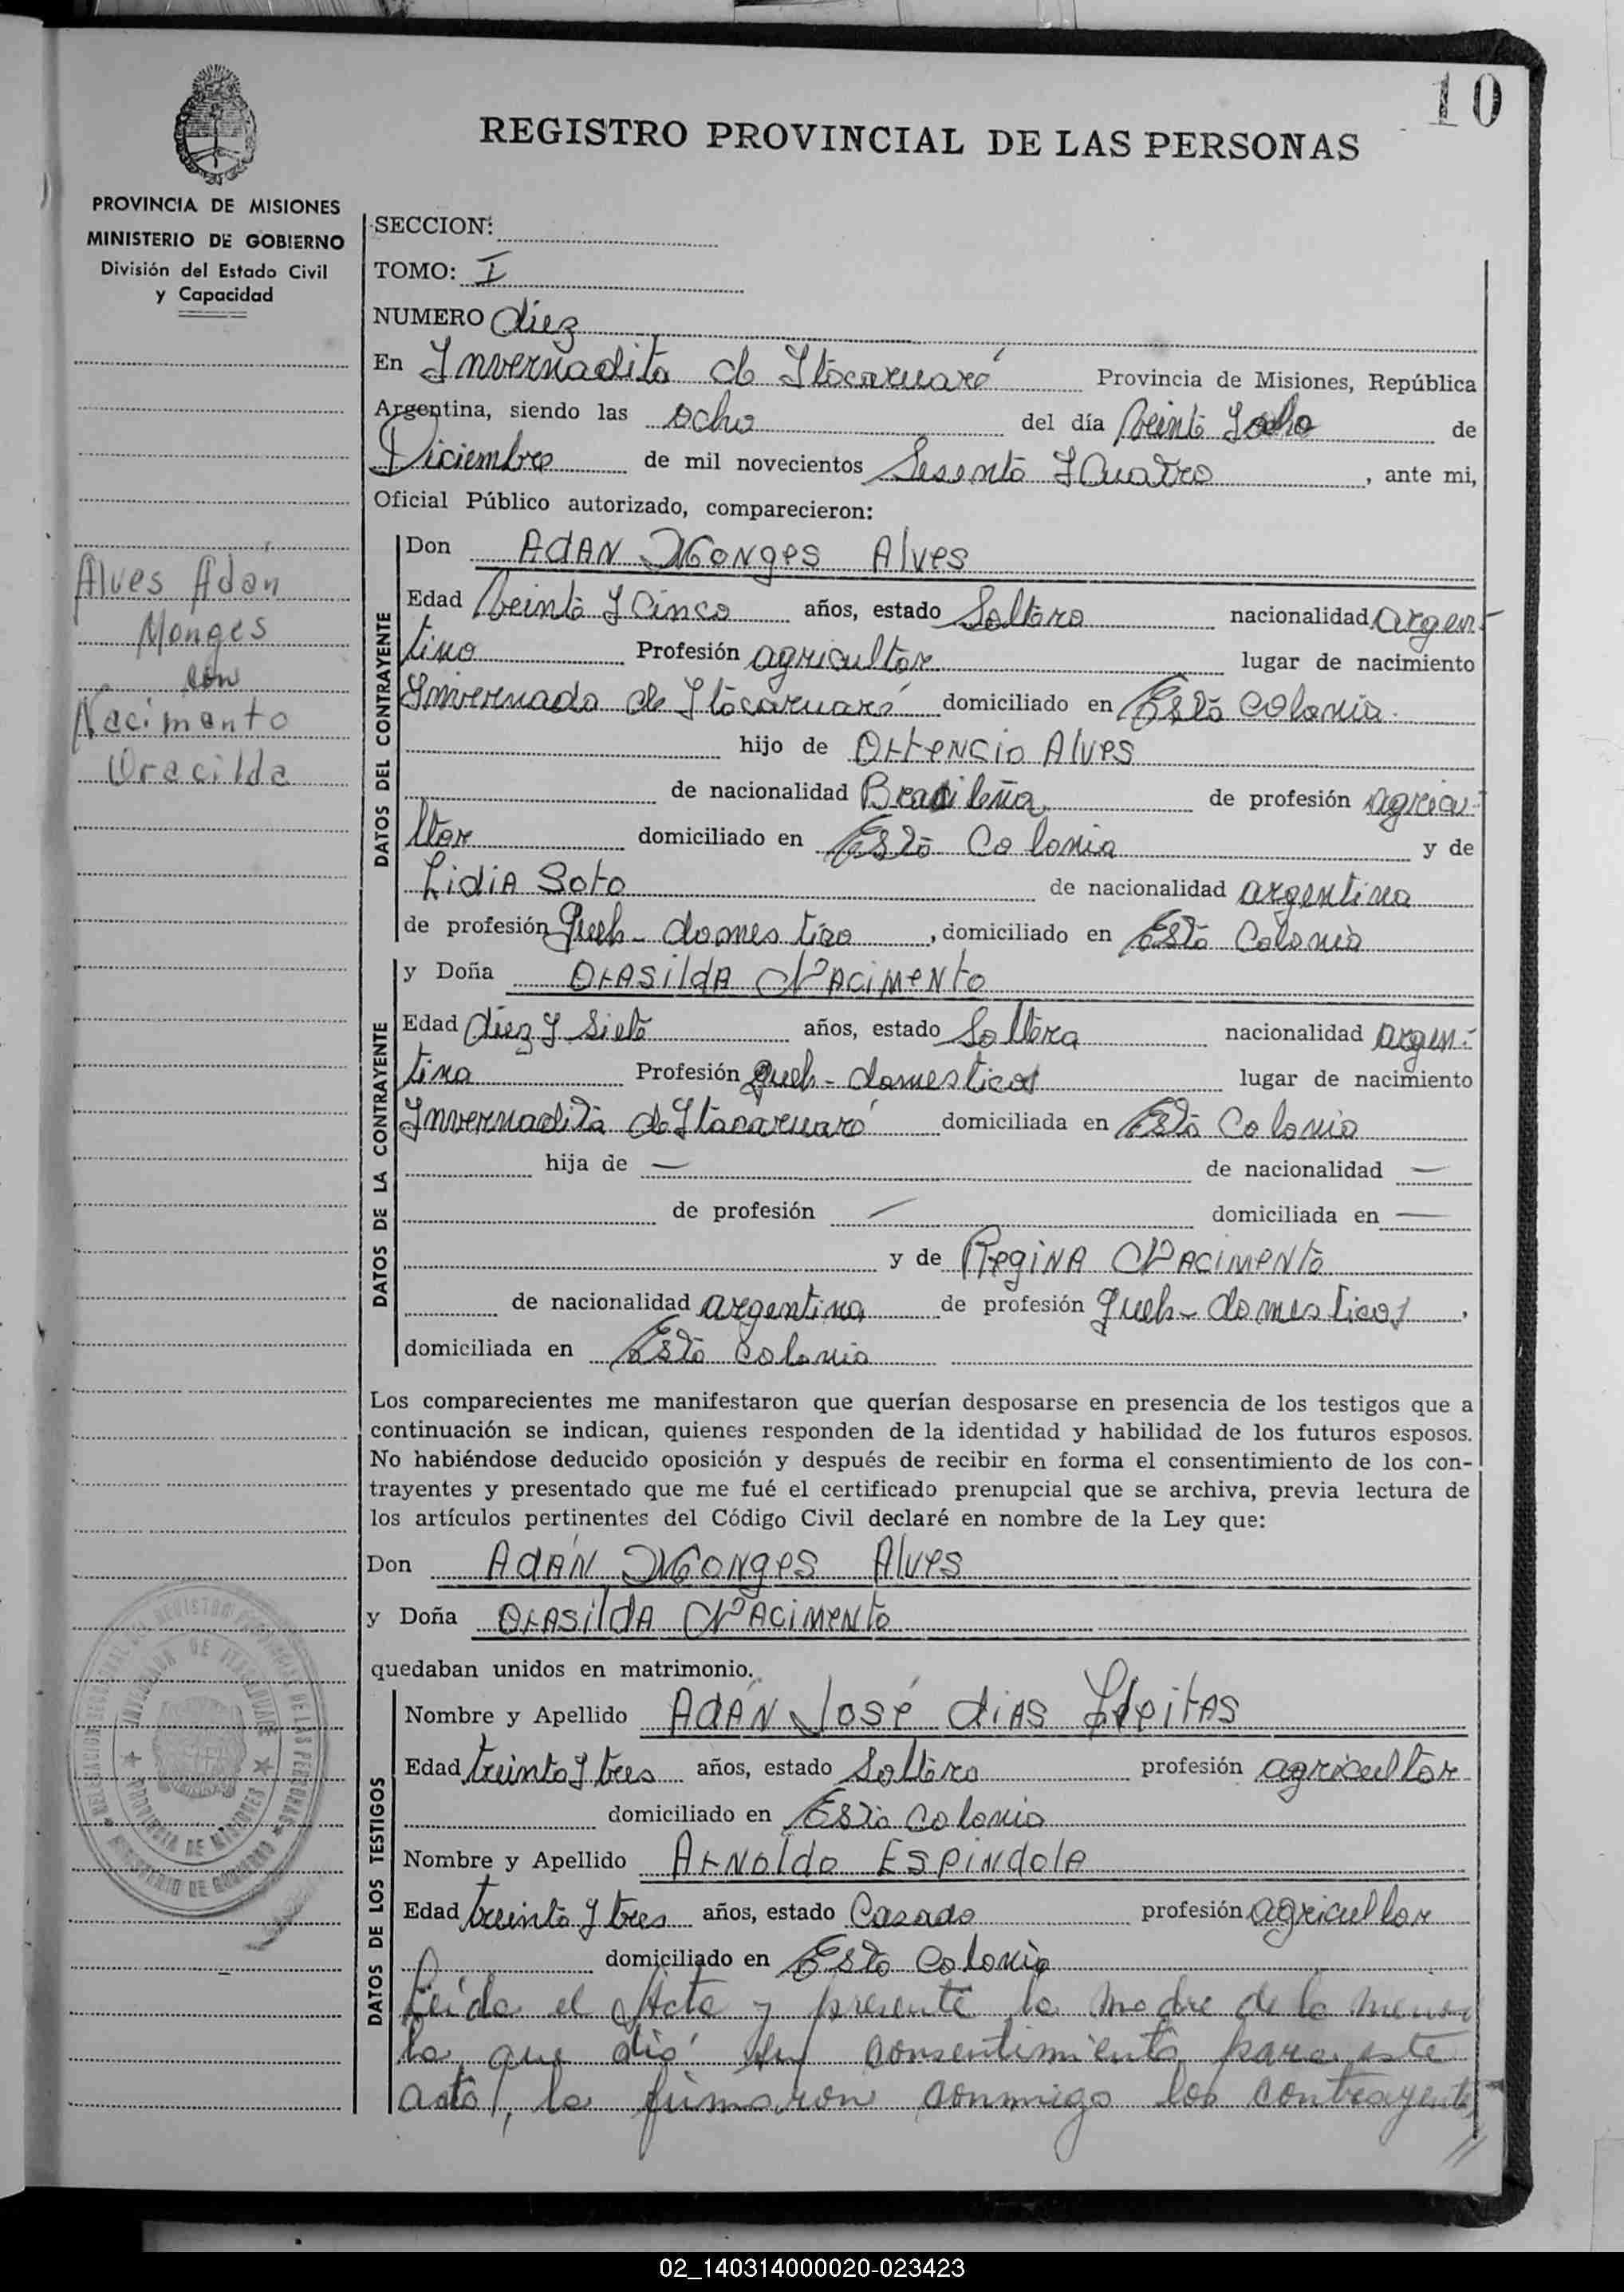 10
REGISTRO PROVINCIAL DE LAS PERSONAS
PROVINCIA DE MISIONES
MINISTERIO DE GOBIERNO
División del Estado Civil
y Capacidad
Alves Adán
Monges
con
Nacimento
Oracilda
SECCION:
TOMO: I
NUMERO diez
En Invernadita de Itacaruaré Provincia de Misiones, República
Argentina, siendo las ocho del día Veinte y ocho de
Diciembre de mil novecientos Sesenta y Cuatro, ante mi,
Oficial Público autorizado, comparecieron:
DATOS DEL CONTRAYENTE
Don AdAN MONges Alves
Edad Veinte y Cinco años, estado Soltero nacionalidad Argen-
tino Profesión agricultor lugar de nacimiento
Invernada de Itacaruaré domiciliado en Esta colonia.
hijo de OrtENCio Alves
de nacionalidad Brasileña de profesión agricu-
ltor domiciliado en Esta Colonia y de
LidiA Soto de nacionalidad argentina
de profesión Queh-domestico, domiciliado en Esta Colonia
DATOS DE LA CONTRAYENTE
y Doña OrASildA NACiMeNto
Edad diez y Siete años, estado Soltera nacionalidad Argen-
tina Profesión Queh-domesticos lugar de nacimiento
Invernadita de Itacaruaré domiciliada en Esta Colonia
hija de — de nacionalidad —
de profesión — domiciliada en —
y de RegiNA NACiMeNto
de nacionalidad argentina de profesión Queh-domesticos,
domiciliada en Esta Colonia
Los comparecientes me manifestaron que querían desposarse en presencia de los testigos que a
continuación se indican, quienes responden de la identidad y habilidad de los futuros esposos.
No habiéndose deducido oposición y después de recibir en forma el consentimiento de los con-
trayentes y presentado que me fué el certificado prenupcial que se archiva, previa lectura de
los artículos pertinentes del Código Civil declaré en nombre de la Ley que:
Don AdÁN MONges Alves
y Doña OrASildA NACiMeNto
quedaban unidos en matrimonio.
DATOS DE LOS TESTIGOS
Nombre y Apellido AdÁN José diAS FreitAS
Edad treinta y tres años, estado Soltero profesión agricultor
domiciliado en Esta Colonia
Nombre y Apellido ArNoldo ESpiNdolA
Edad treinta y tres años, estado Casado profesión agricultor
domiciliado en Esta Colonia
Leída el Acta y presente la madre de la menor
la que dió su consentimiento para este
acto, la firmaron conmigo los contrayentes
//
PROVINCIA DE MISIONES
MINISTERIO DE GOBIERNO
02_140314000020-023423